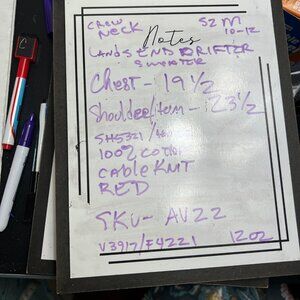 CREW NECK SZ M 10-12
Notes
LANDS END DRIFTER
SWEATER
Chest - 19 1/2
Shoulder/Hem - 23 1/2
100% COTTON
CABLE KNIT
RED
SKU - AV22
V3917/F4221 12 OZ